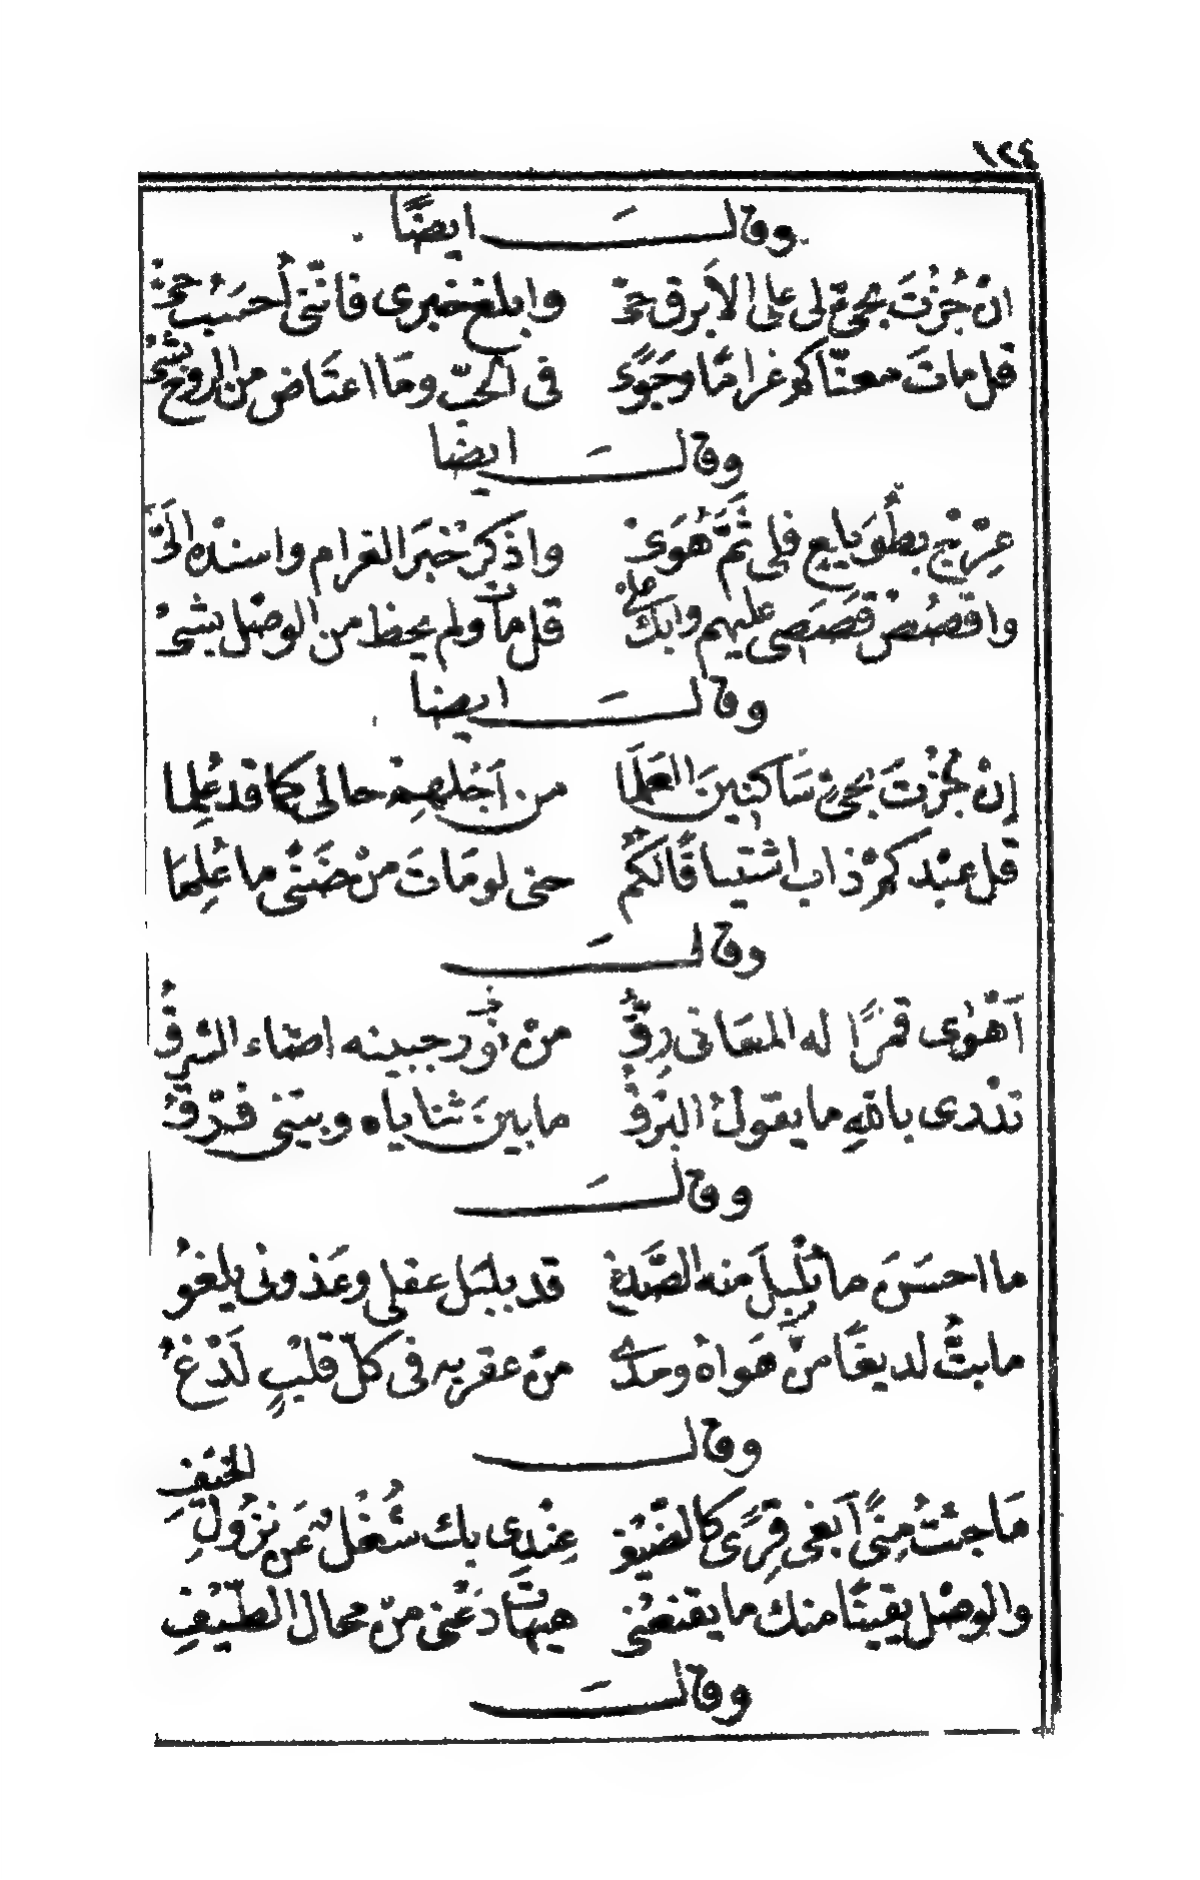 ١٢٤
وقال ايضًا
انْ جُزْتَ بحىٍّ لى على الأبرق حىّ وابلغ خبرى فانّنى أُحسَبُ حىّ
قل مات معنّاكم غرامًا وجَوًى فى الحبّ وما اعتَاض من الروح بشىْ
وقال ايضًا
عرّج بطُوَيلع فلى ثَمَّ هُوَىْ واذكر خبَر الغرام واسنده الىّ
واقصُصْ قصَصِى عليهم وابك علىّ قل مات ولم يحظ من الوصْل بشىْ
وقال ايضا
إنْ جُزْتَ بحىٍّ سَاكنينَ العَلَما من اَجْلهِمْ حالى كما قد عُلِما
قل عبْدكم ذاب اشتياقًا لكُم حتى لومَات منْ ضَنًى ما عُلِمَا
وقال
أهْوٰى قمرًا له المعَانى رِقُّ منْ نُور جبينه اضاء الشرقُ
تدْرى باللهِ مايقولُ البَرْقُ مابينَ ثناياه وبينى فرْقُ
وقال
ما احسَنَ مابُلْبلَ منه الصّدغ قد بلبَل عقلى وعَذولى يلغو
مابتُّ لديغًا منْ هَواهُ وحدى منْ عقربه فى كلّ قلْبٍ لَدْغُ
وقال
مَاجئتُ مِنًى اَبغى قِرًى كالضّيْفِ عِنْدى بك شُغْل عَن نزُولِ الخيَفِ
والوصْل يقينًا منك مايقنعُنى هيهَات دَعْنى منْ محال الطّيْفِ
وقال